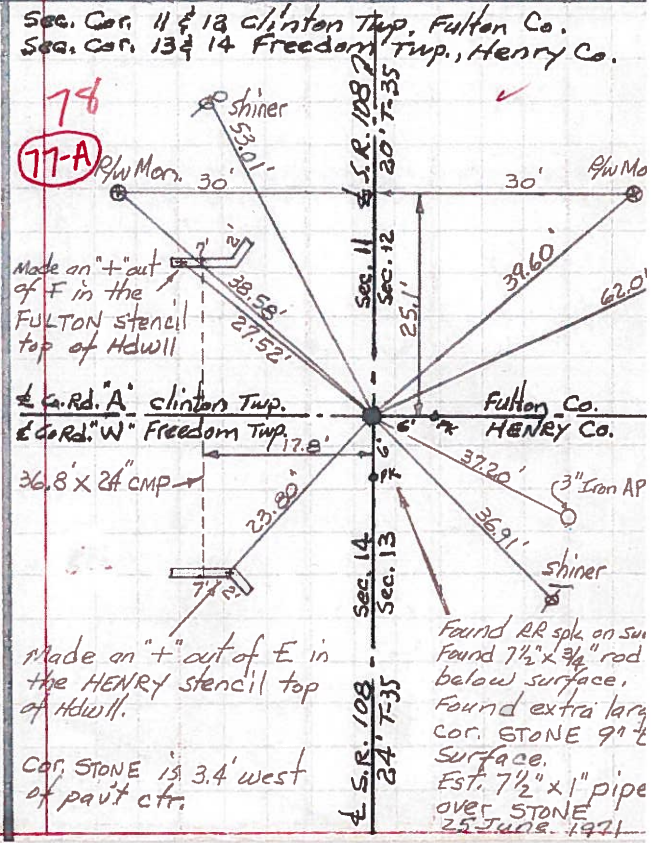 Sec. Cor. 11 & 12 Clinton Twp, Fulton Co.
Sec. Cor. 13 & 14 Freedom Twp., Henry Co.
78
77-A
shiner
53.01'
℄ S.R. 108
20' T-35
R/W Mon.
30'
30'
R/W Mo
Sec. 11
Sec. 12
7'
2'
Made an "+" out
of F in the
FULTON stencil
top of Hdwll
38.58'
27.52'
25.1'
39.60'
62.0'
℄ Co. Rd. "A" Clinton Twp.
℄ Co Rd. "W" Freedom Twp.
Fulton Co.
HENRY Co.
6' PK
17.8'
6'
PK
36.8' x 24" CMP
23.80'
37.20'
3" Iron AP
36.91'
shiner
Sec. 14
Sec. 13
7'
2'
Made an "+" out of E in
the HENRY stencil top
of Hdwll.
Cor. STONE is 3.4' west
of pav't ctr.
℄ S.R. 108
24' T-35
Found RR spk on su
Found 7½" x ¾" rod
below surface.
Found extra lar
cor. STONE 9"
surface.
Est. 7½" x 1" pipe
over STONE
25 June 1971